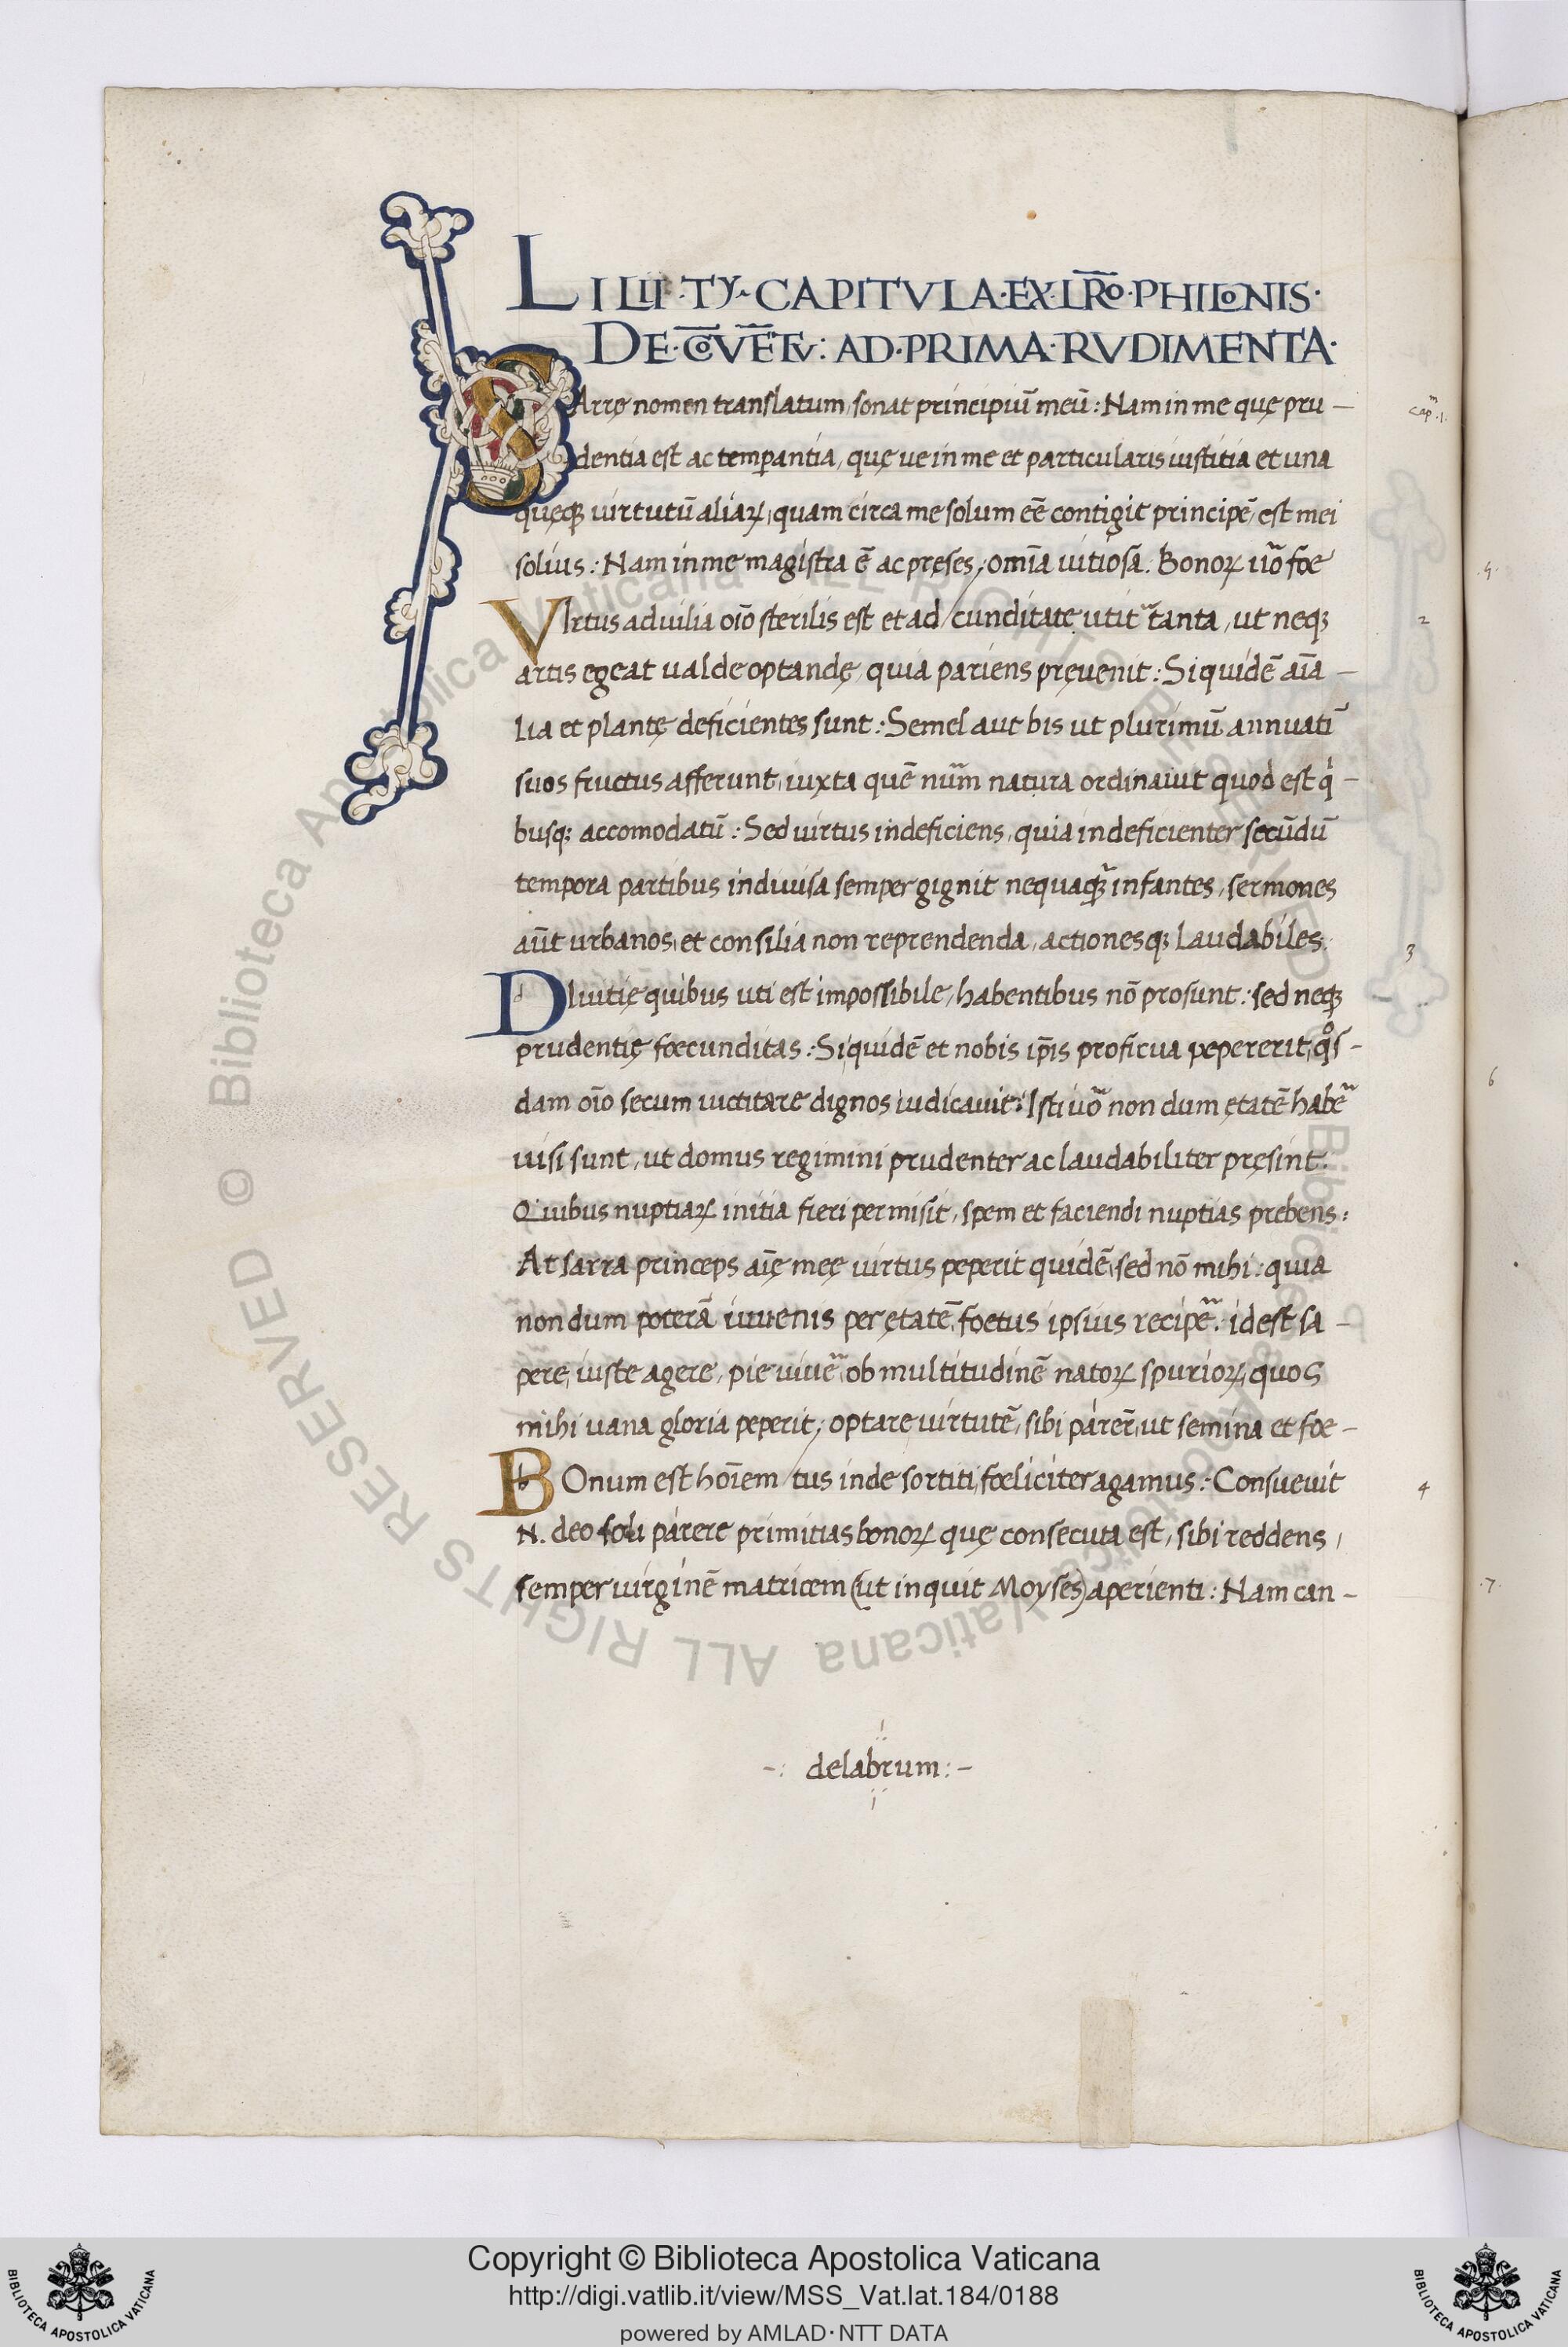 LILII·TY·CAPITVLA·EX·LR̄O·PHILONIS·
DE·CŌVĒTV: AD·PRIMA·RVDIMENTA·
SArrę nomen translatum, sonat principiū meū: Nam in me quę pru—
cap.m 1.
dentia est ac temperantia, quę ue in me et particularis iustitia et una
quęqꝫ uirtutū aliaꝝ, quam circa me solum eē contigit principē, est mei
solius: Nam in me magistra ē ac pręses, omīa uitiosa. Bonoꝝ uō foe
VIrtus ad uilia oīo sterilis est et ad / cunditate utit tanta, ut neqꝫ
2
artis egeat ualde optandę, quia pariens pręuenit: Siquidē aīa—
lia et plantę deficientes sunt: Semel aut bis ut plurimū annuatī
suos fructus afferunt, iuxta quē num̄ natura ordinauit quod est q—
busqꝫ accomodatū: Sed uirtus indeficiens, quia indeficienter secūdū
tempora partibus indiuisa semper gignit nequaqꝫ infantes, sermones
aūt urbanos, et consilia non reprendenda, actionesqꝫ laudabiles.
3
DIuitię quibus uti est impossibile, habentibus nō prosunt: sed neqꝫ
prudentię foecunditas: Siquidē et nobis ip̄is proficua pepererit, qos—
dam oīo secum uictitare dignos iudicauit: Isti uō non dum ętatē habē
uisi sunt, ut domus regimini prudenter ac laudabiliter pręsint.
Quibus nuptiaꝝ initia fieri permisit, spem et faciendi nuptias prebens:
At sarra princeps aīę meę uirtus peperit quidē, sed nō mihi: quia
non dum poterā iuuenis per ętatē, foetus ipsius recipe. idest sa—
pere, iuste agere, pie uiue, ob multitudinē natoꝝ spurioꝝ, quos
mihi uana gloria peperit, optare uirtutē, sibi párer, ut semina et foe—
BOnum est hoīem / tus inde sortiti, foeliciter agamus: Consueuit
4
N. deo soli párere primitias bonoꝝ quę consecuta est, sibi reddens,
semper uirginē matricem (ut inquit Moyses) aperienti: Nam can—
-: delabrum: -
.5.
6
.7.
© Biblioteca Apostolica Vaticana ALL RIGHTS RESERVED
Copyright © Biblioteca Apostolica Vaticana
http://digi.vatlib.it/view/MSS_Vat.lat.184/0188
powered by AMLAD·NTT DATA
BIBLIOTECA APOSTOLICA VATICANA
BIBLIOTECA APOSTOLICA VATICANA